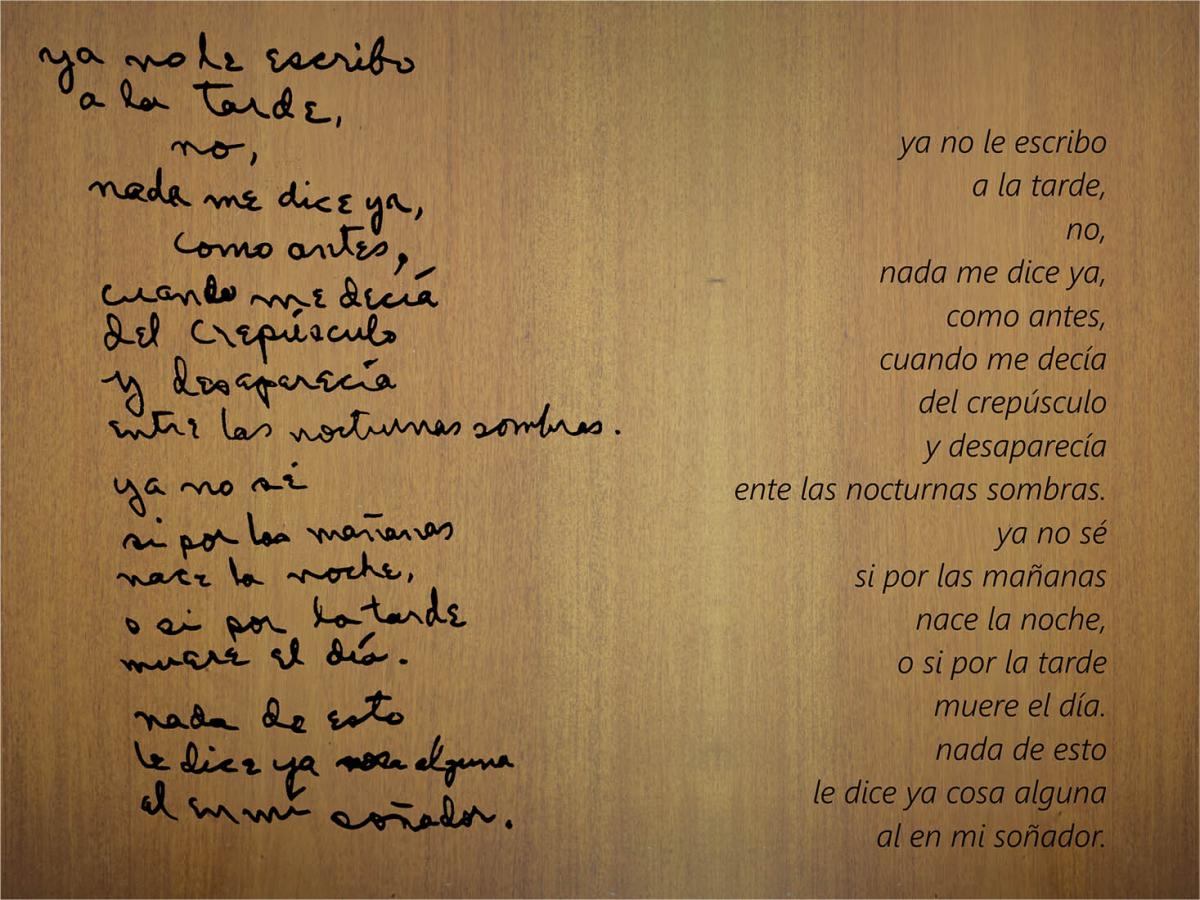 ya no le escribo
a la tarde,
no,
nada me dice ya,
como antes,
cuando me decía
del crepúsculo
y desaparecía
entre las nocturnas sombras.
ya no sé
si por las mañanas
nace la noche,
o si por la tarde
muere el día.
nada de esto
le dice ya cosa alguna
al en mi soñador.
ya no le escribo
a la tarde,
no,
nada me dice ya,
como antes,
cuando me decía
del crepúsculo
y desaparecía
ente las nocturnas sombras.
ya no sé
si por las mañanas
nace la noche,
o si por la tarde
muere el día.
nada de esto
le dice ya cosa alguna
al en mi soñador.